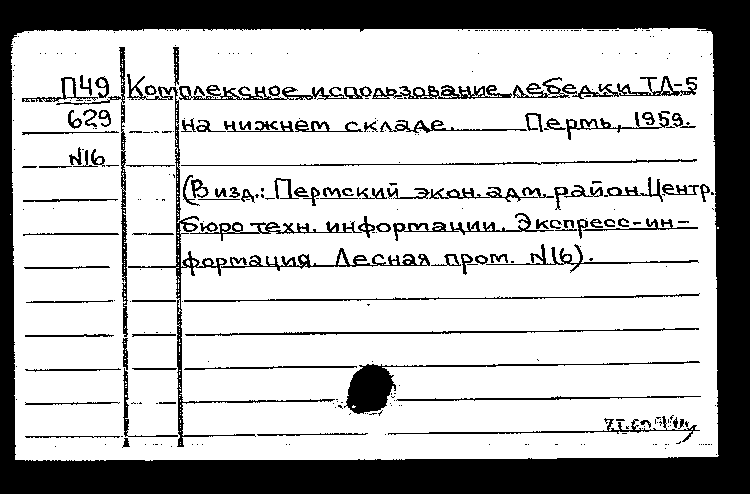 П49 Комплексное использование лебедки ТЛ-5
629 на нижнем складе. Пермь, 1959.
N16
(В изд.: Пермский экон. адм. район. Центр.
бюро техн. информации. Экспресс-ин-
формация. Лесная пром. N16).